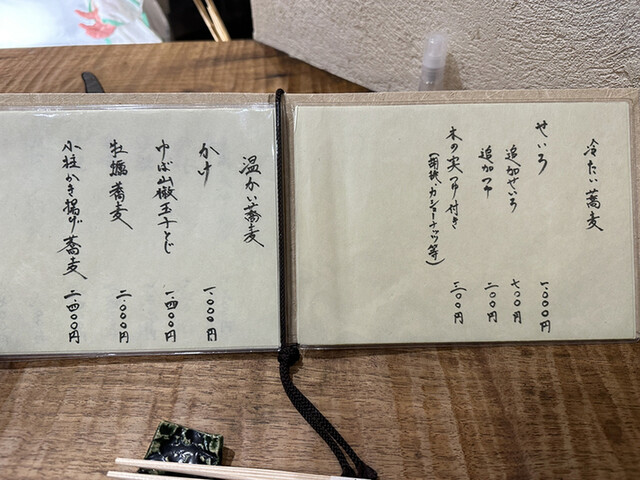 冷たい蕎麦
せいろ 一、〇〇〇円
追加せいろ 七〇〇円
追加つゆ 二〇〇円
木の実つゆ付き 三〇〇円
(胡桃、カシューナッツ等)
温かい蕎麦
かけ 一、〇〇〇円
ゆば山椒玉子とじ 一、四〇〇円
牡蠣蕎麦 二、〇〇〇円
小柱かき揚げ蕎麦 二、四〇〇円